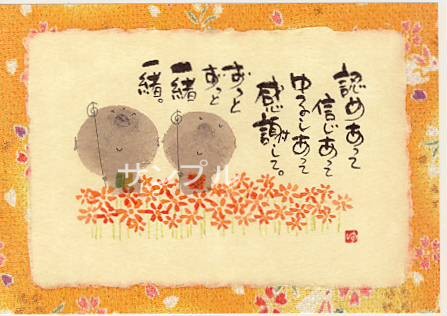 認めあって
信じあって
ゆるしあって
感謝して。
ずっと
ずっと
一緒
一緒。
サンプル
ゆ